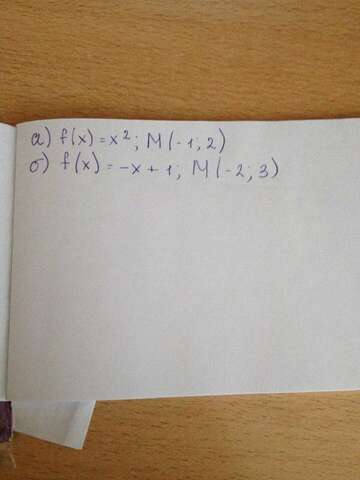 а) f(x) = x²; M(-1; 2)
б) f(x) = -x + 1; M(-2; 3)